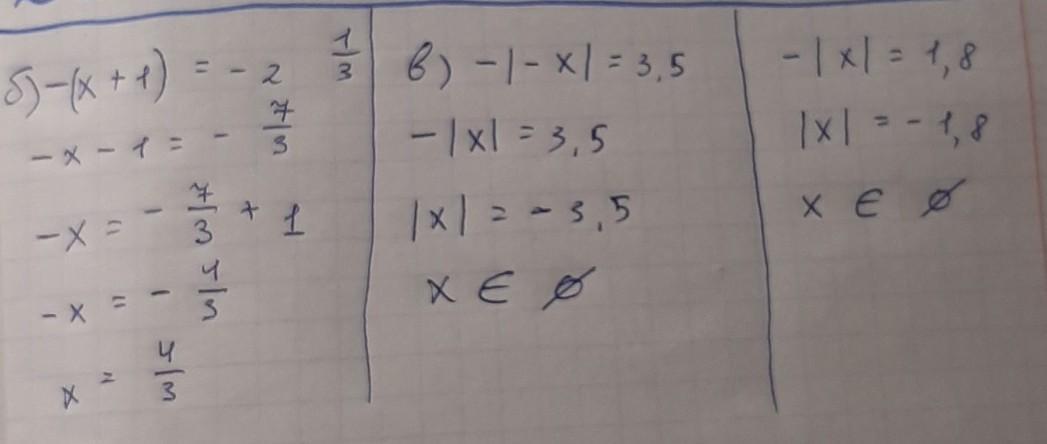 б) -(x + 1) = - 2 1/3
-x - 1 = - 7/3
-x = - 7/3 + 1
-x = - 4/3
x = 4/3
в) -|-x| = 3,5
-|x| = 3,5
|x| = -3,5
x ∈ ∅
-|x| = 1,8
|x| = -1,8
x ∈ ∅